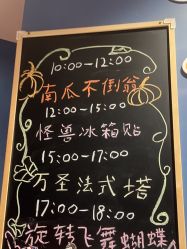 10:00-12:00
南瓜不倒翁
12:00-15:00
怪兽冰箱贴
15:00-17:00
万圣法式塔
17:00-18:00
旋转飞舞蝴蝶